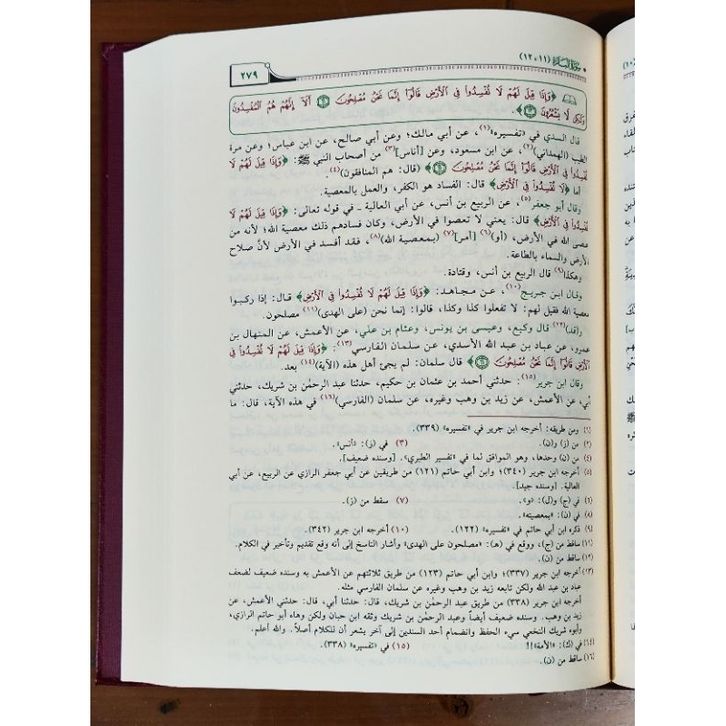 سورة البقرة (١١، ١٢)
٢٧٩
﴿وَإِذَا قِيلَ لَهُمْ لَا تُفْسِدُوا فِي الْأَرْضِ قَالُوا إِنَّمَا نَحْنُ مُصْلِحُونَ ۝ أَلَا إِنَّهُمْ هُمُ الْمُفْسِدُونَ
وَلَكِنْ لَا يَشْعُرُونَ ۝﴾.
قال السدي في «تفسيره»(١)، عن أبي مالك؛ وعن أبي صالح، عن ابن عباس؛ وعن مرة
الطيب (الهمداني)(٢)، عن ابن مسعود، وعن [أناس](٣) من أصحاب النبي ﷺ: ﴿وَإِذَا قِيلَ لَهُمْ لَا
تُفْسِدُوا فِي الْأَرْضِ قَالُوا إِنَّمَا نَحْنُ مُصْلِحُونَ ۝﴾ (قال: هم المنافقون)(٤).
أما ﴿لَا تُفْسِدُوا فِي الْأَرْضِ﴾ قال: الفساد هو الكفر، والعمل بالمعصية.
وقال أبو جعفر(٥)، عن الربيع بن أنس، عن أبي العالية ـ في قوله تعالى: ﴿وَإِذَا قِيلَ لَهُمْ لَا
تُفْسِدُوا فِي الْأَرْضِ﴾ قال: يعني لا تعصوا في الأرض، وكان فسادهم ذلك معصية الله؛ لأنه من
عصى الله في الأرض، (أو)(٦) [أمر](٧) (بمعصية الله)(٨)، فقد أفسد في الأرض لأنَّ صلاح
الأرض والسماء بالطاعة.
وهكذا(٩) قال الربيع بن أنس، وقتادة.
وقال ابن جريج(١٠)، عن مجاهد: ﴿وَإِذَا قِيلَ لَهُمْ لَا تُفْسِدُوا فِي الْأَرْضِ﴾ قال: إذا ركبوا
معصية الله فقيل لهم: لا تفعلوا كذا وكذا، قالوا: إنما نحن (على الهدى)(١١) مصلحون.
(قد)(١٢) قال وكيع، وعيسى بن يونس، وعثام بن علي، عن الأعمش، عن المنهال بن
عمرو، عن عباد بن عبد الله الأسدي، عن سلمان الفارسي(١٣): ﴿وَإِذَا قِيلَ لَهُمْ لَا تُفْسِدُوا فِي
الْأَرْضِ قَالُوا إِنَّمَا نَحْنُ مُصْلِحُونَ ۝﴾ قال سلمان: لم يجئ أهل هذه (الآية)(١٤) بعد.
وقال ابن جرير(١٥): حدثني أحمد بن عثمان بن حكيم، حدثنا عبد الرحمٰن بن شريك، حدثني
أبي، عن الأعمش، عن زيد بن وهب وغيره، عن سلمان (الفارسي)(١٦) في هذه الآية، قال: ما
(١) ومن طريقه: أخرجه ابن جرير في «تفسيره» (٣٣٩).
(٢) من (ز) و(ن).
(٣) في (ز): «أنس».
(٤) من (ن) وحدها، وهو الموافق لما في «تفسير الطبري». [وسنده ضعيف].
(٥) أخرجه ابن جرير (٣٤٠)؛ وابن أبي حاتم (١٢١) من طريقين عن أبي جعفر الرازي عن الربيع، عن أبي
العالية. [وسنده جيد].
(٦) في (ج) و(ل): «و».
(٧) سقط من (ز).
(٨) في (ن): «بمعصيته».
(٩) ذكره ابن أبي حاتم في «تفسيره» (١٢٢).
(١٠) أخرجه ابن جرير (٣٤٢)
(١١) ساقط من (ج)، ووقع في (هـ): «مصلحون على الهدى» وأشار الناسخ إلى أنه وقع تقديم وتأخير في الكلام.
(١٢) ساقط من (ن).
(١٣) أخرجه ابن جرير (٣٣٧)؛ وابن أبي حاتم (١٢٣) من طريق ثلاثتهم عن الأعمش به وسنده ضعيف لضعف
عباد بن عبد الله ولكن تابعه زيد بن وهب وغيره عن سلمان الفارسي مثله.
أخرجه ابن جرير (٣٣٨) من طريق عبد الرحمٰن بن شريك، قال: حدثنا أبي، قال: حدثني الأعمش، عن
زيد بن وهب وسنده ضعيف أيضاً وعبد الرحمٰن بن شريك وثقه ابن حبان ولكن وهاه أبو حاتم الرازي،
وأبوه شريك النخعي سيء الحفظ وانضمام أحد السندين إلى آخر يشعر أن للكلام أصلاً. والله أعلم.
(١٤) في (ك): «الأمة»!!
(١٥) في «تفسيره» (٣٣٨).
(١٦) ساقط من (ن).